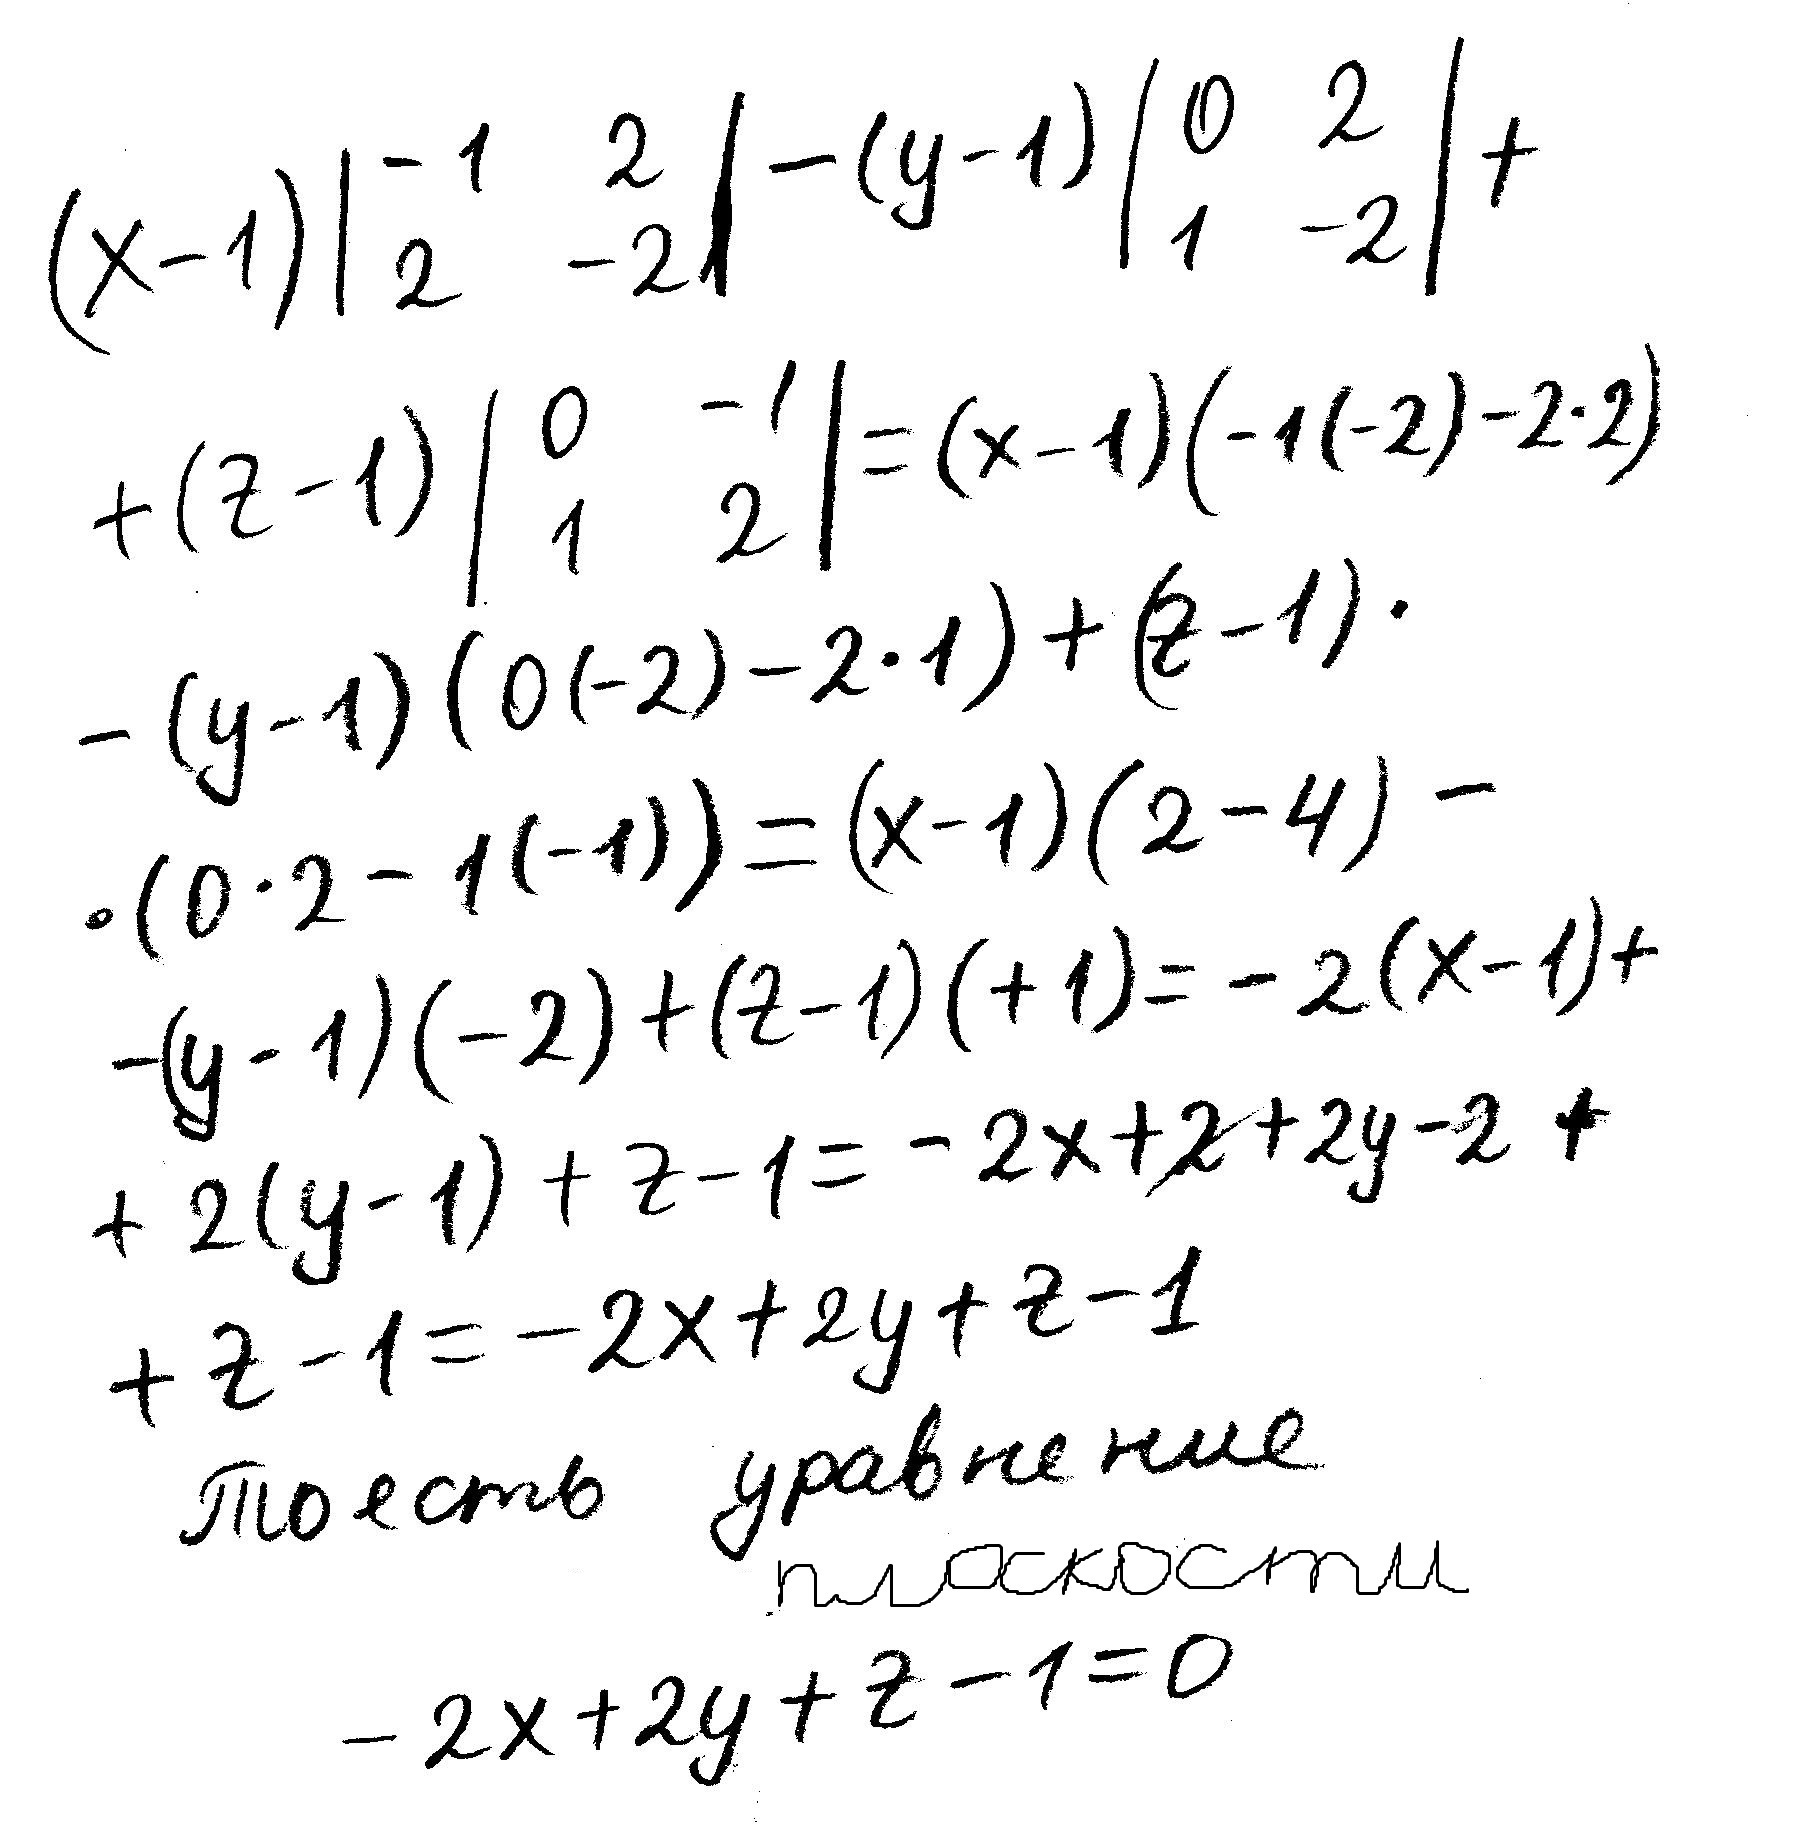 (x-1) | -1 2 | - (y-1) | 0 2 | +
2 -2 1 -2
+ (z-1) | 0 -1 | = (x-1)(-1(-2)-2·2)
1 2
- (y-1)(0(-2)-2·1) + (z-1)·
·(0·2-1(-1)) = (x-1)(2-4) -
-(y-1)(-2)+(z-1)(+1) = -2(x-1)+
+2(y-1)+z-1 = -2x+2+2y-2+
+z-1 = -2x+2y+z-1
То есть уравнение
плоскости
-2x+2y+z-1=0